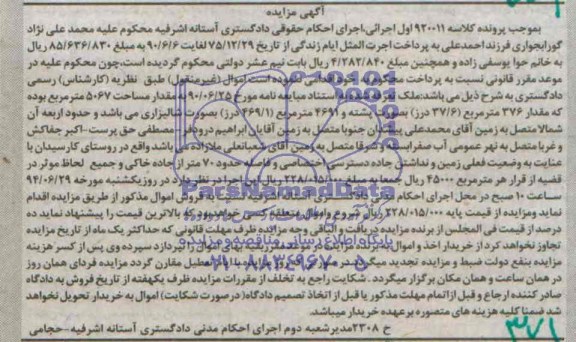 آگهی مزایده
بموجب پرونده کلاسه ۹۲۰۰۱۱ اول اجرائی، اجرای احکام حقوقی دادگستری آستانه اشرفیه محکوم علیه محمد علی نژاد
گورابجواری فرزند احمدعلی به پرداخت اجرت المثل ایام زندگی از تاریخ ۷۵/۱۲/۲۹ لغایت ۹۰/۶/۶ به مبلغ ۸۵/۶۳۶/۸۳۰ ریال
به خانم حوا یوسفی زاده و همچنین مبلغ ۴/۲۸۲/۸۴۰ ریال بابت نیم عشر دولتی محکوم گردیده است، چون محکوم علیه در
موعد مقرر قانونی نسبت به پرداخت محکوم به اقدامی ننموده است اموال (غیرمنقول) طبق نظریه (کارشناس) رسمی
دادگستری به شرح ذیل می باشد: ملک مستناد مبایعه نامه مورخ ۹۰/۰۶/۲۵ به مقدار مساحت ۵۰۶۷ مترمربع بوده
که مقدار ۳۷۶ مترمربع (۳۷/۶ درز) بصورت پشته و ۴۶۹۱ مترمربع (۴۶۹/۱ درز) بصورت شالیزاری می باشد و حدود اربعه آن
شمالا متصل به زمین آقای محمدعلی پیشدان جنوبا متصل به زمین آقایان ابراهیم درودفر، مصطفی حق پرست-اکبر جفاکش
و غربا متصل به نهر عمومی آب صفراست و شرقا متصل به زمین آقای شعبانعلی ملازاده می باشد واقع در روستای کارسیدان با
عنایت به وضعیت فعلی زمین و نداشتن جاده دسترسی اختصاصی و فاصله حدود ۷۰ متر از جاده خاکی و جمیع لحاظ موثر در
قضیه از قرار هر مترمربع ۴۵۰۰۰ ریال جمعا به مبلغ ۲۲۸/۰۱۵/۰۰۰ ریال این اجرا در نظر دارد در روز یکشنبه مورخه ۹۴/۰۶/۲۹
ساعت ۱۰ صبح در محل اجرای احکام مدنی دادگستری آستانه اشرفیه نسبت به فروش اموال مذکور از طریق مزایده اقدام
نماید و مزایده از قیمت پایه ۲۲۸/۰۱۵/۰۰۰ ریال شروع و اموال متعلقه کسی خواهد بود که بالاترین قیمت را پیشنهاد نماید ده
درصد از قیمت فی المجلس از برنده مزایده دریافت و الباقی وجه مزایده ظرف مهلت قانونی که حداکثر یک ماه از تاریخ مزایده
تجاوز نخواهد کرد از خریدار اخذ و اموال به برنده مزایده در موعد مقرر بقیه بهای اموال را نپردازد سپرده وی پس از کسر هزینه
مزایده بنفع دولت ضبط و مزایده تجدید میگردد تعطیل مقارن گردد مزایده فردای همان روز
در همان ساعت و همان مکان برگزار میگردد. شکایت راجع به تخلف از مقررات مزایده ظرف یکهفته از تاریخ فروش به دادگاه
صادر کننده ارجاع و قبل از اتمام مهلت مذکور یا قبل از اتخاذ تصمیم دادگاه (در صورت شکایت) اموال به خریدار تحویل نخواهد
شد ضمنا کلیه هزینه های متصوره بر عهده خریدار میباشد.
خ ۲۳۰۸ مدیر شعبه دوم اجرای احکام مدنی دادگستری آستانه اشرفیه-حجامی
ParsNamadData
پایگاه اطلاع رسانی مناقصه و مزایده
۰۲۱-۸۸۳۴۹۶۷۰-۵
۳۷۱